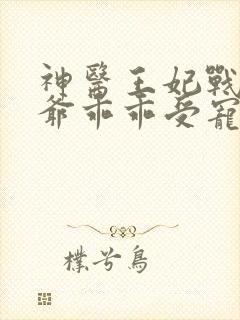 神醫王妃戰
爺乖乖受寵
樸兮鳥